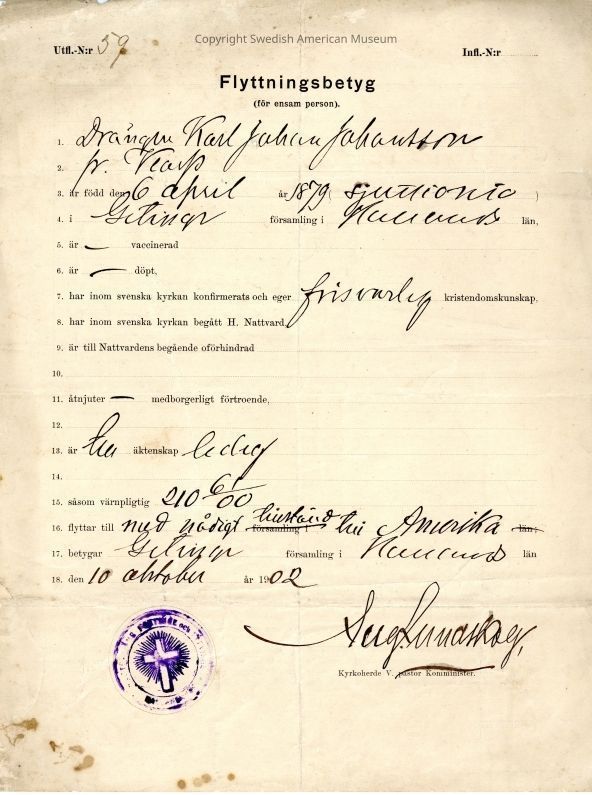 Copyright Swedish American Museum
Utfl.-N:r 59 Infl.-N:r
Flyttningsbetyg
(för ensam person).
1. Drängen Karl Johan Johansson
2. fr.
3. är född den 6 april år 1879 (sjuttionio)
4. i Getinge församling i Hallands län,
5. är — vaccinerad
6. är — döpt,
7. har inom svenska kyrkan konfirmerats och eger kristendomskunskap,
8. har inom svenska kyrkan begått H. Nattvard,
9. är till Nattvardens begående oförhindrad
10.
11. åtnjuter — medborgerligt förtroende,
12.
13. är till äktenskap ledig
14.
15. såsom värnpligtig 210 61/00
16. flyttar till med nådigt tillstånd församling i till Amerika län;
17. betygar Getinge församling i Hallands län
18. den 10 oktober år 1902
Aug. Lundskog,
Kyrkoherde V. pastor Komminister.